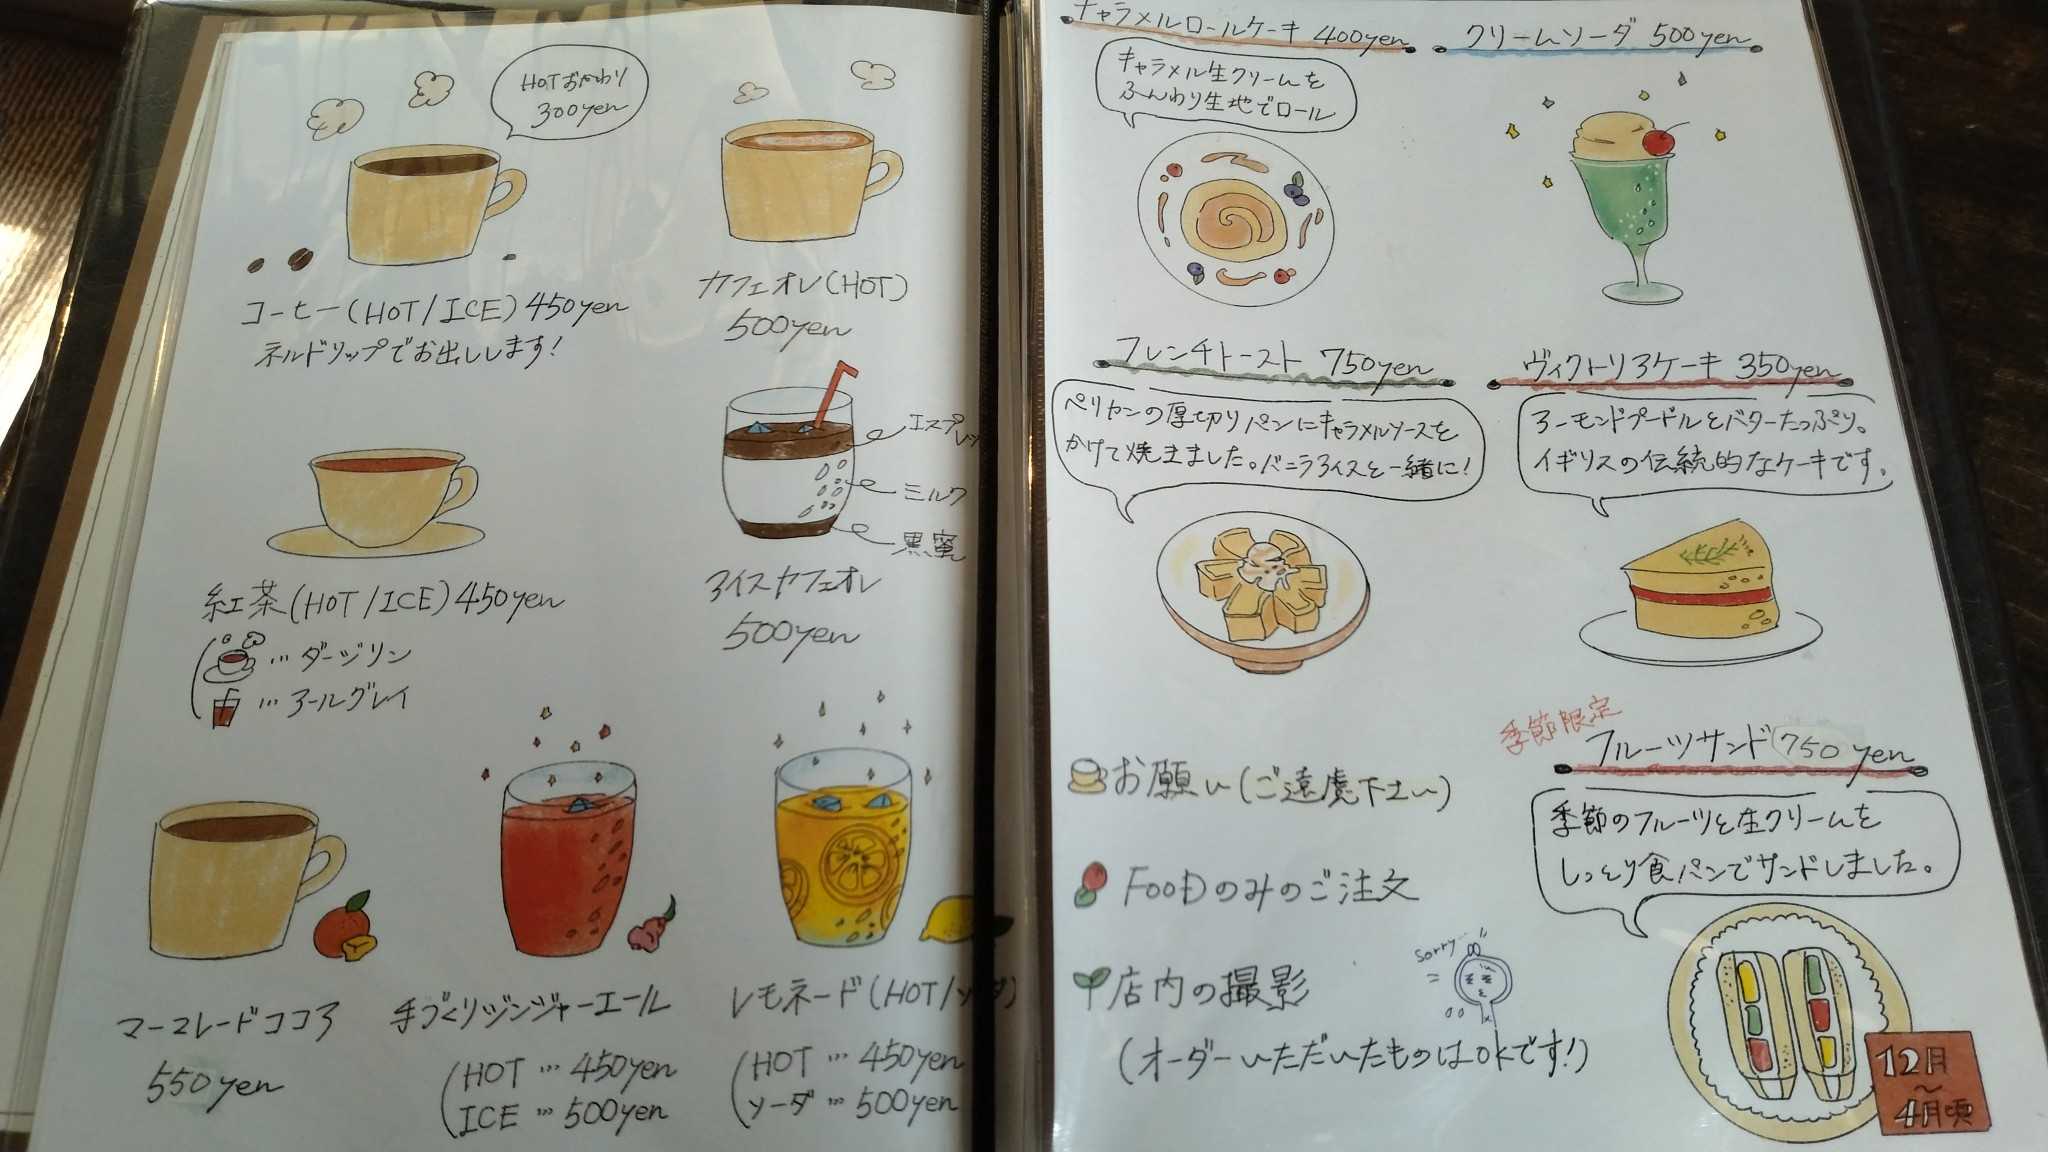 HOTおかわり
300yen
コーヒー(HOT/ICE)450yen
ネルドリップでお出しします!
カフェオレ(HOT)
500yen
エスプレッソ
ミルク
黒蜜
アイスカフェオレ
500yen
紅茶(HOT/ICE)450yen
…ダージリン
…アールグレイ
マーマレードココア
550yen
手づくりジンジャーエール
HOT…450yen
ICE…500yen
レモネード(HOT/ソーダ)
HOT…450yen
ソーダ…500yen
キャラメルロールケーキ 400yen
キャラメル生クリームを
ふんわり生地でロール
クリームソーダ 500yen
フレンチトースト 750yen
ペリカンの厚切りパンにキャラメルソースを
かけて焼きました。バニラアイスと一緒に!
ヴィクトリアケーキ 350yen
アーモンドプードルとバターたっぷり。
イギリスの伝統的なケーキです。
季節限定
フルーツサンド 750yen
季節のフルーツと生クリームを
しっとり食パンでサンドしました。
12月
~
4月頃
お願い(ご遠慮下さい)
FOODのみのご注文
店内の撮影
sorry…
(オーダーいただいたものはOKです!)